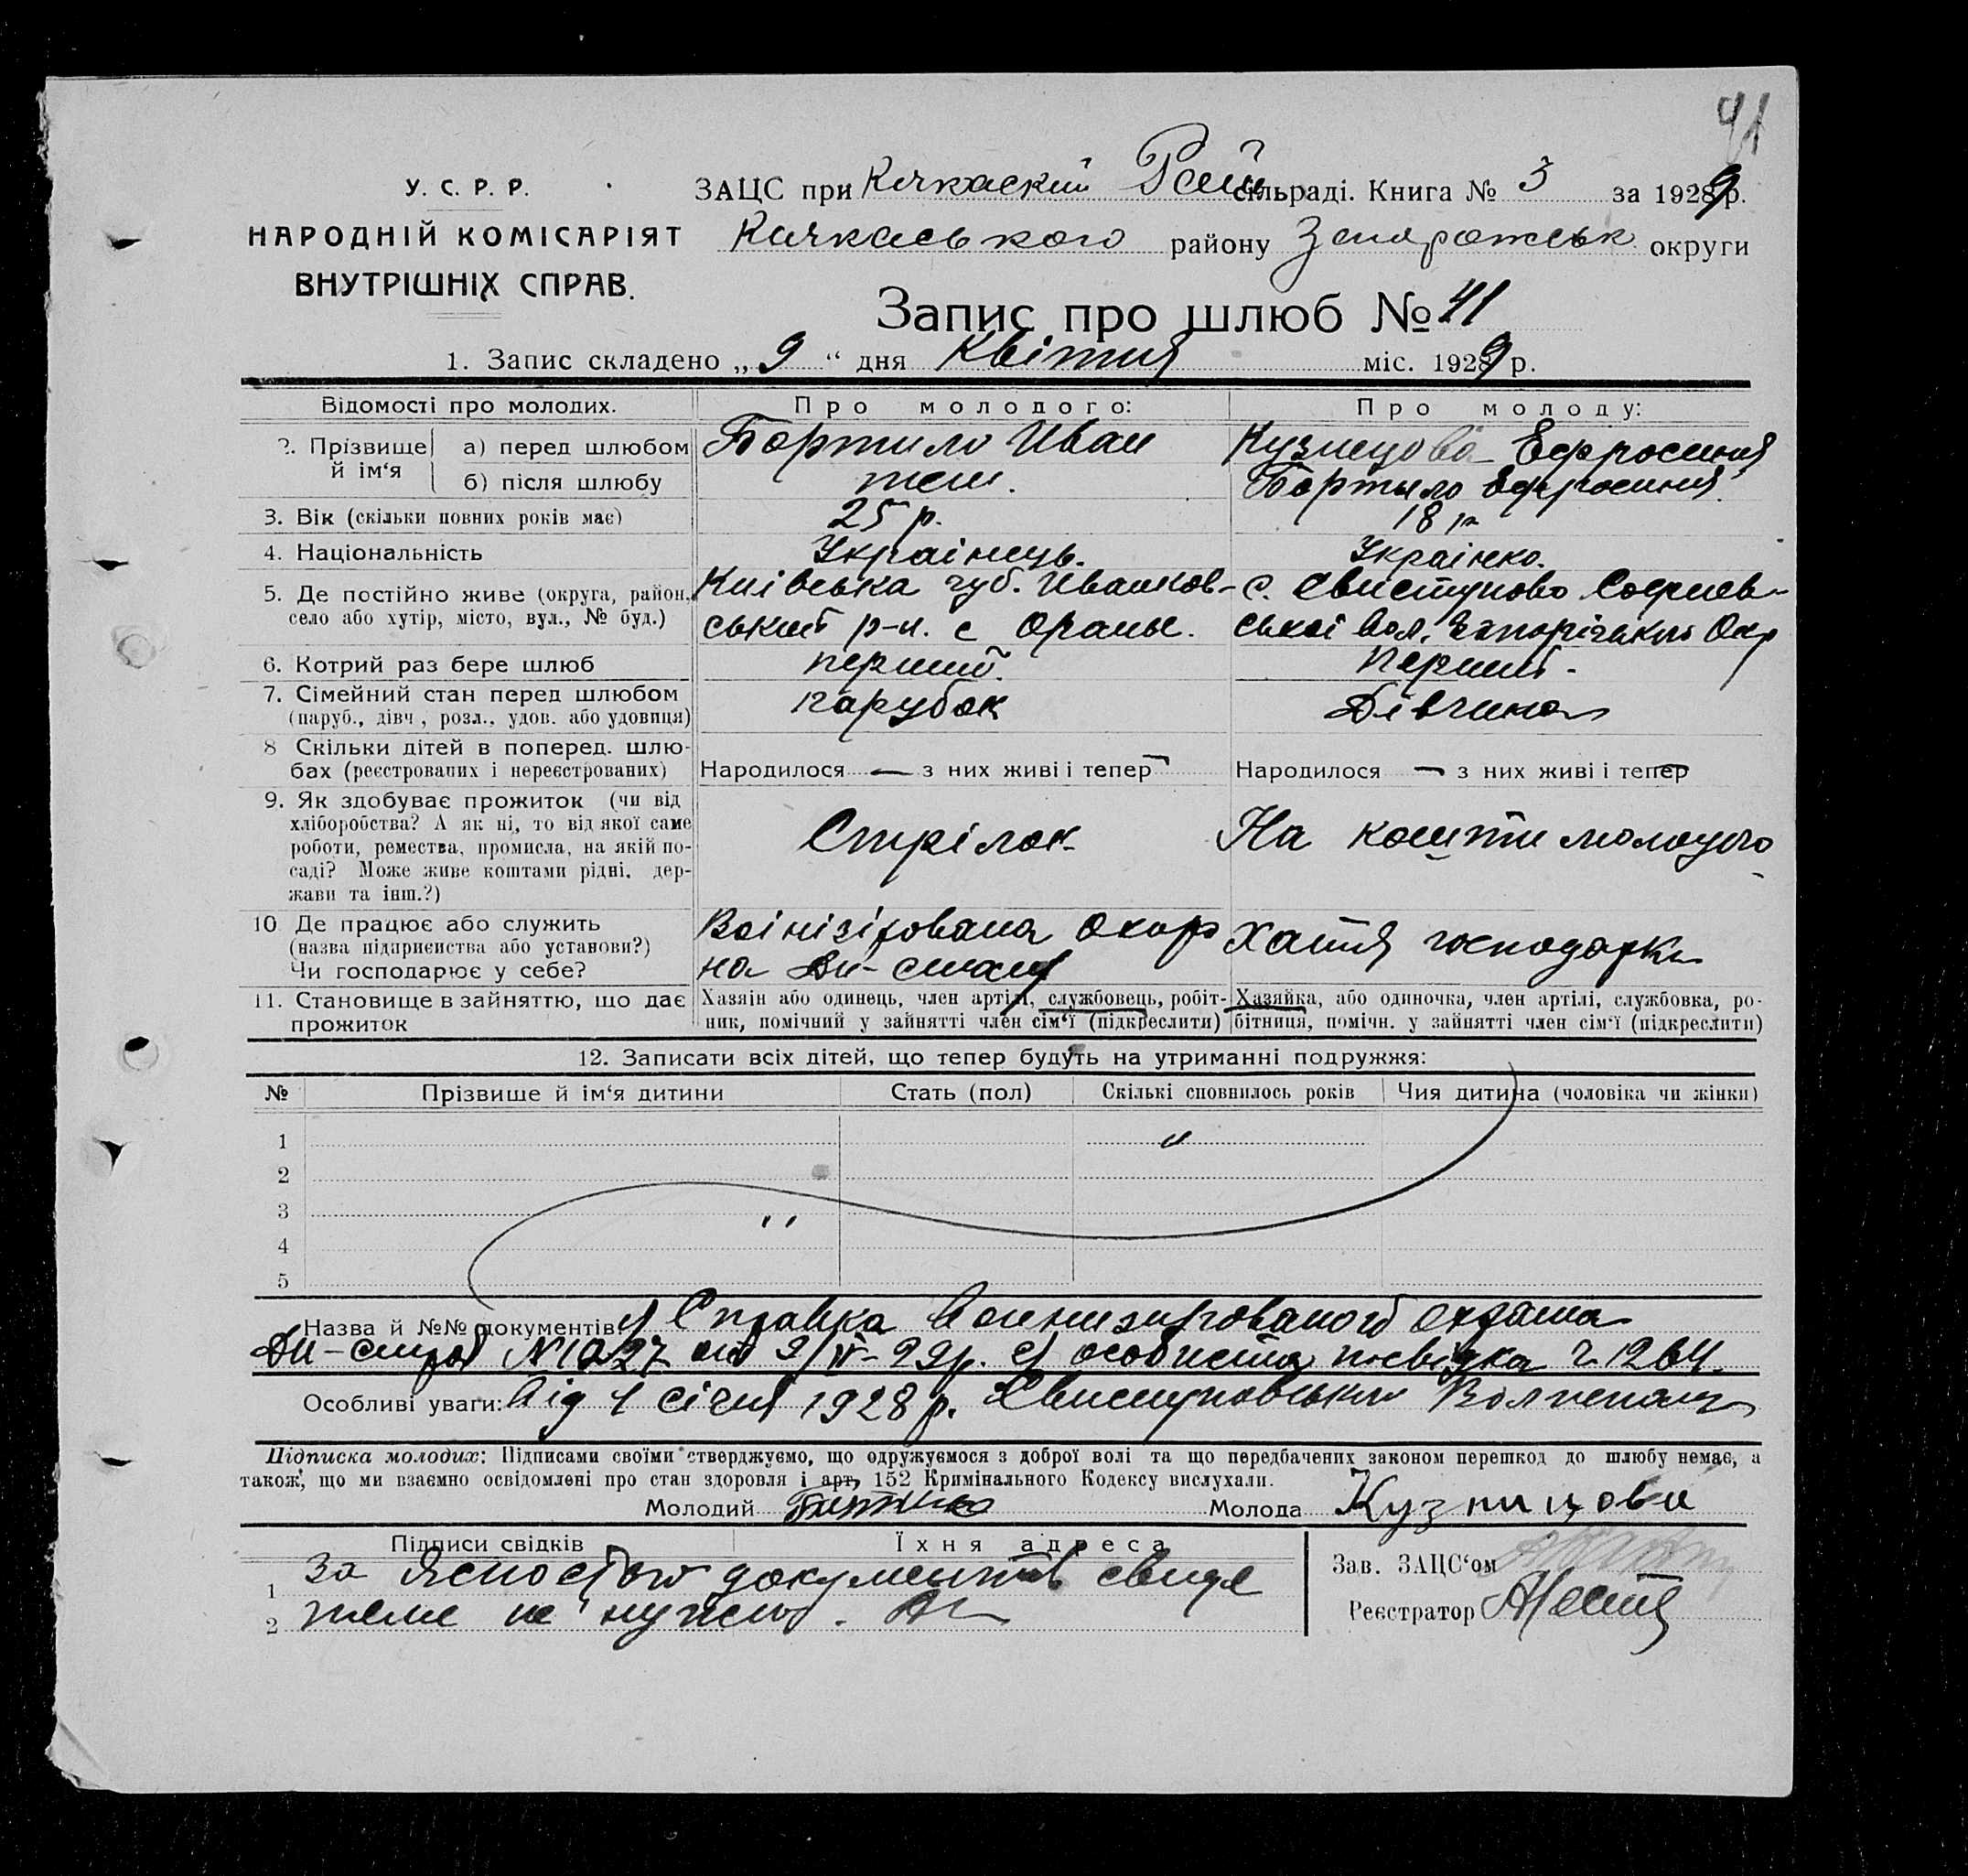 41
У. С. Р. Р.
НАРОДНІЙ КОМІСАРІЯТ
ВНУТРІШНІХ СПРАВ.
ЗАЦС при Кичкаский Рай сільраді. Книга № 3 за 1929 р.
Кичкаського району Запорожськ округи
Запис про шлюб № 41
1. Запис складено „9“ дня Квітня міс. 1929 р.
Відомості про молодих. Про молодого: Про молоду:
2. Прізвище й ім‘я а) перед шлюбом Бортило Иван Кузнецова Ефросиния
б) після шлюбу теж. Бортыло Ефросиния.
3. Вік (скільки повних років має) 25 р. 18 р
4. Національність Украінець. Украінка.
5. Де постійно живе (округа, район, Киівська губ. Иванков- с. Свистуново Софиев-
село або хутір, місто, вул., № буд.) ський р-н. с Оране. ськоі вол. Запорізькоі Окр
6. Котрий раз бере шлюб перший. Перший.
7. Сімейний стан перед шлюбом парубок Дівчина
(паруб., дівч., розл., удов. або удовиця)
8 Скільки дітей в поперед. шлю-
бах (реєстрованих і нереєстрованих) Народилося — з них живі і тепер — Народилося — з них живі і тепер —
9. Як здобуває прожиток (чи від
хліборобства? А як ні, то від якої саме
роботи, ремества, промисла, на якій по- Стрілок На кошти молодого
саді? Може живе коштами рідні, дер-
жави та інш.?)
10 Де працює або служить Воінізірована Охор Хатня господарка
(назва підприємства або установи?)
Чи господарює у себе? на Дн-
11. Становище в зайняттю, що дає Хазяїн або одинець, член артілі, службовець, робіт- Хазяйка, або одиночка, член артілі, службовка, ро-
прожиток ник, помічний у зайнятті член сім‘ї (підкреслити) бітниця, помічн. у зайнятті член сім‘ї (підкреслити)
12. Записати всіх дітей, що тепер будуть на утриманні подружжя:
№ Прізвише й ім‘я дитини Стать (пол) Скількі сповнилось років Чия дитина (чоловіка чи жінки)
1
2
3
4
5
Назва й №№ документів: 1) Справка Военизированой охраны
Дн-строя N 1027 від 9/IV-29р. 2) особиста посвідка ч. 1264.
Особливі уваги: від 4 січня 1928 р. Свистуновськоі
Підписка молодих: Підписами своїми стверджуємо, що одружуємося з доброї волі та що передбачених законом перешкод до шлюбу немає, а
також, що ми взаємно освідомлені про стан здоровля і арт. 152 Кримінального Кодексу вислухали.
Молодий Бортило Молода Кузницова
Підписи свідків Їхня адреса
1 За документів свиде
2 не нужно.
Зав. ЗАЦС‘ом
Реєстратор